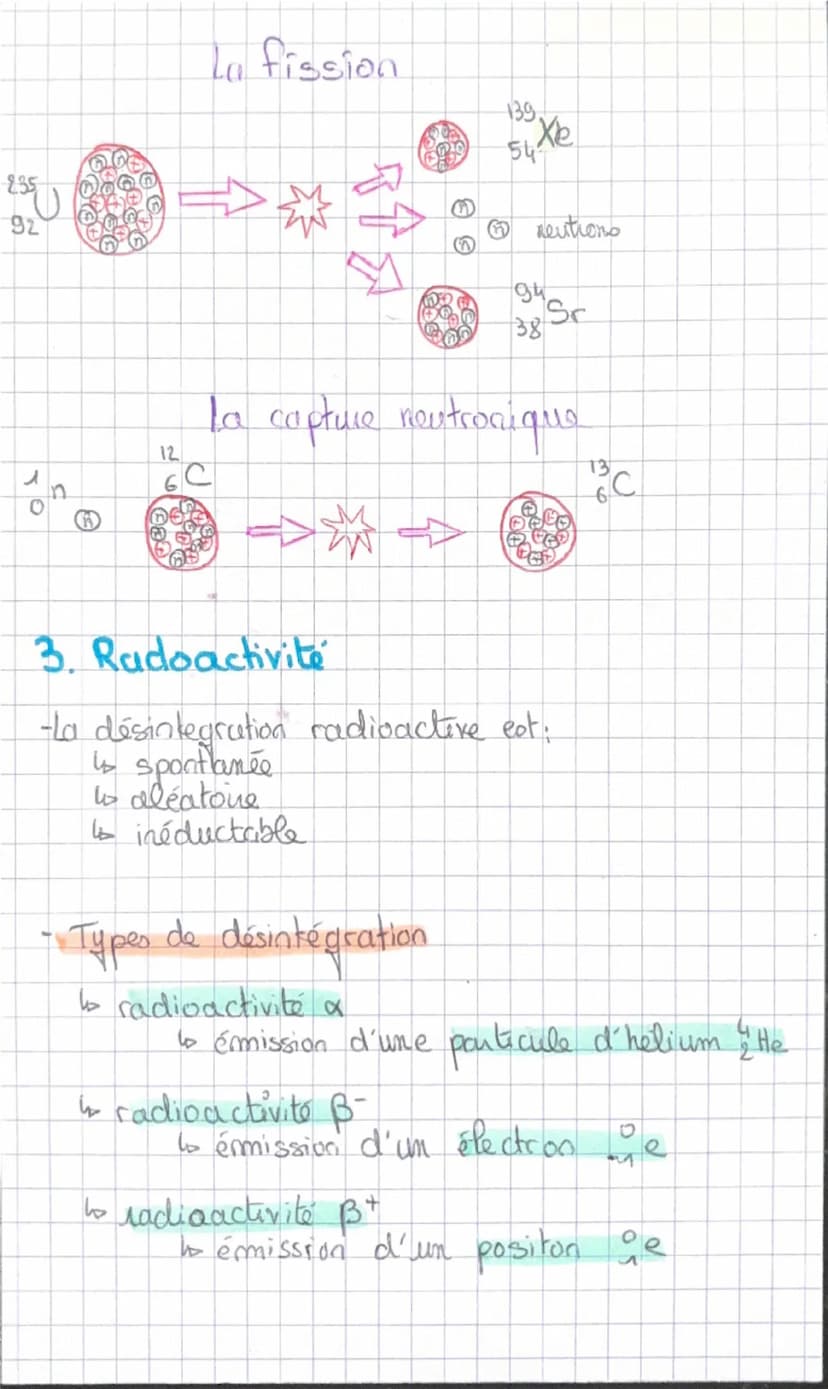 La fission
²³⁵₉₂U
¹³⁹₅₄Xe
n n n neutrons
⁹⁴₃₈Sr
La capture neutronique
¹₀n n ¹²₆C ¹³₆C
3. Radoactivité
-La désintegration radioactive est:
↳ spontanée
↳ aléatoire
↳ inéductable
- Types de désintégration
↳ radioactivité α
↳ émission d'une particule d'hélium ⁴₂He
↳ radioactivité β⁻
↳ émission d'un électron ⁰₋₁e
↳ radioactivité β⁺
↳ émission d'un positon ⁰₁e